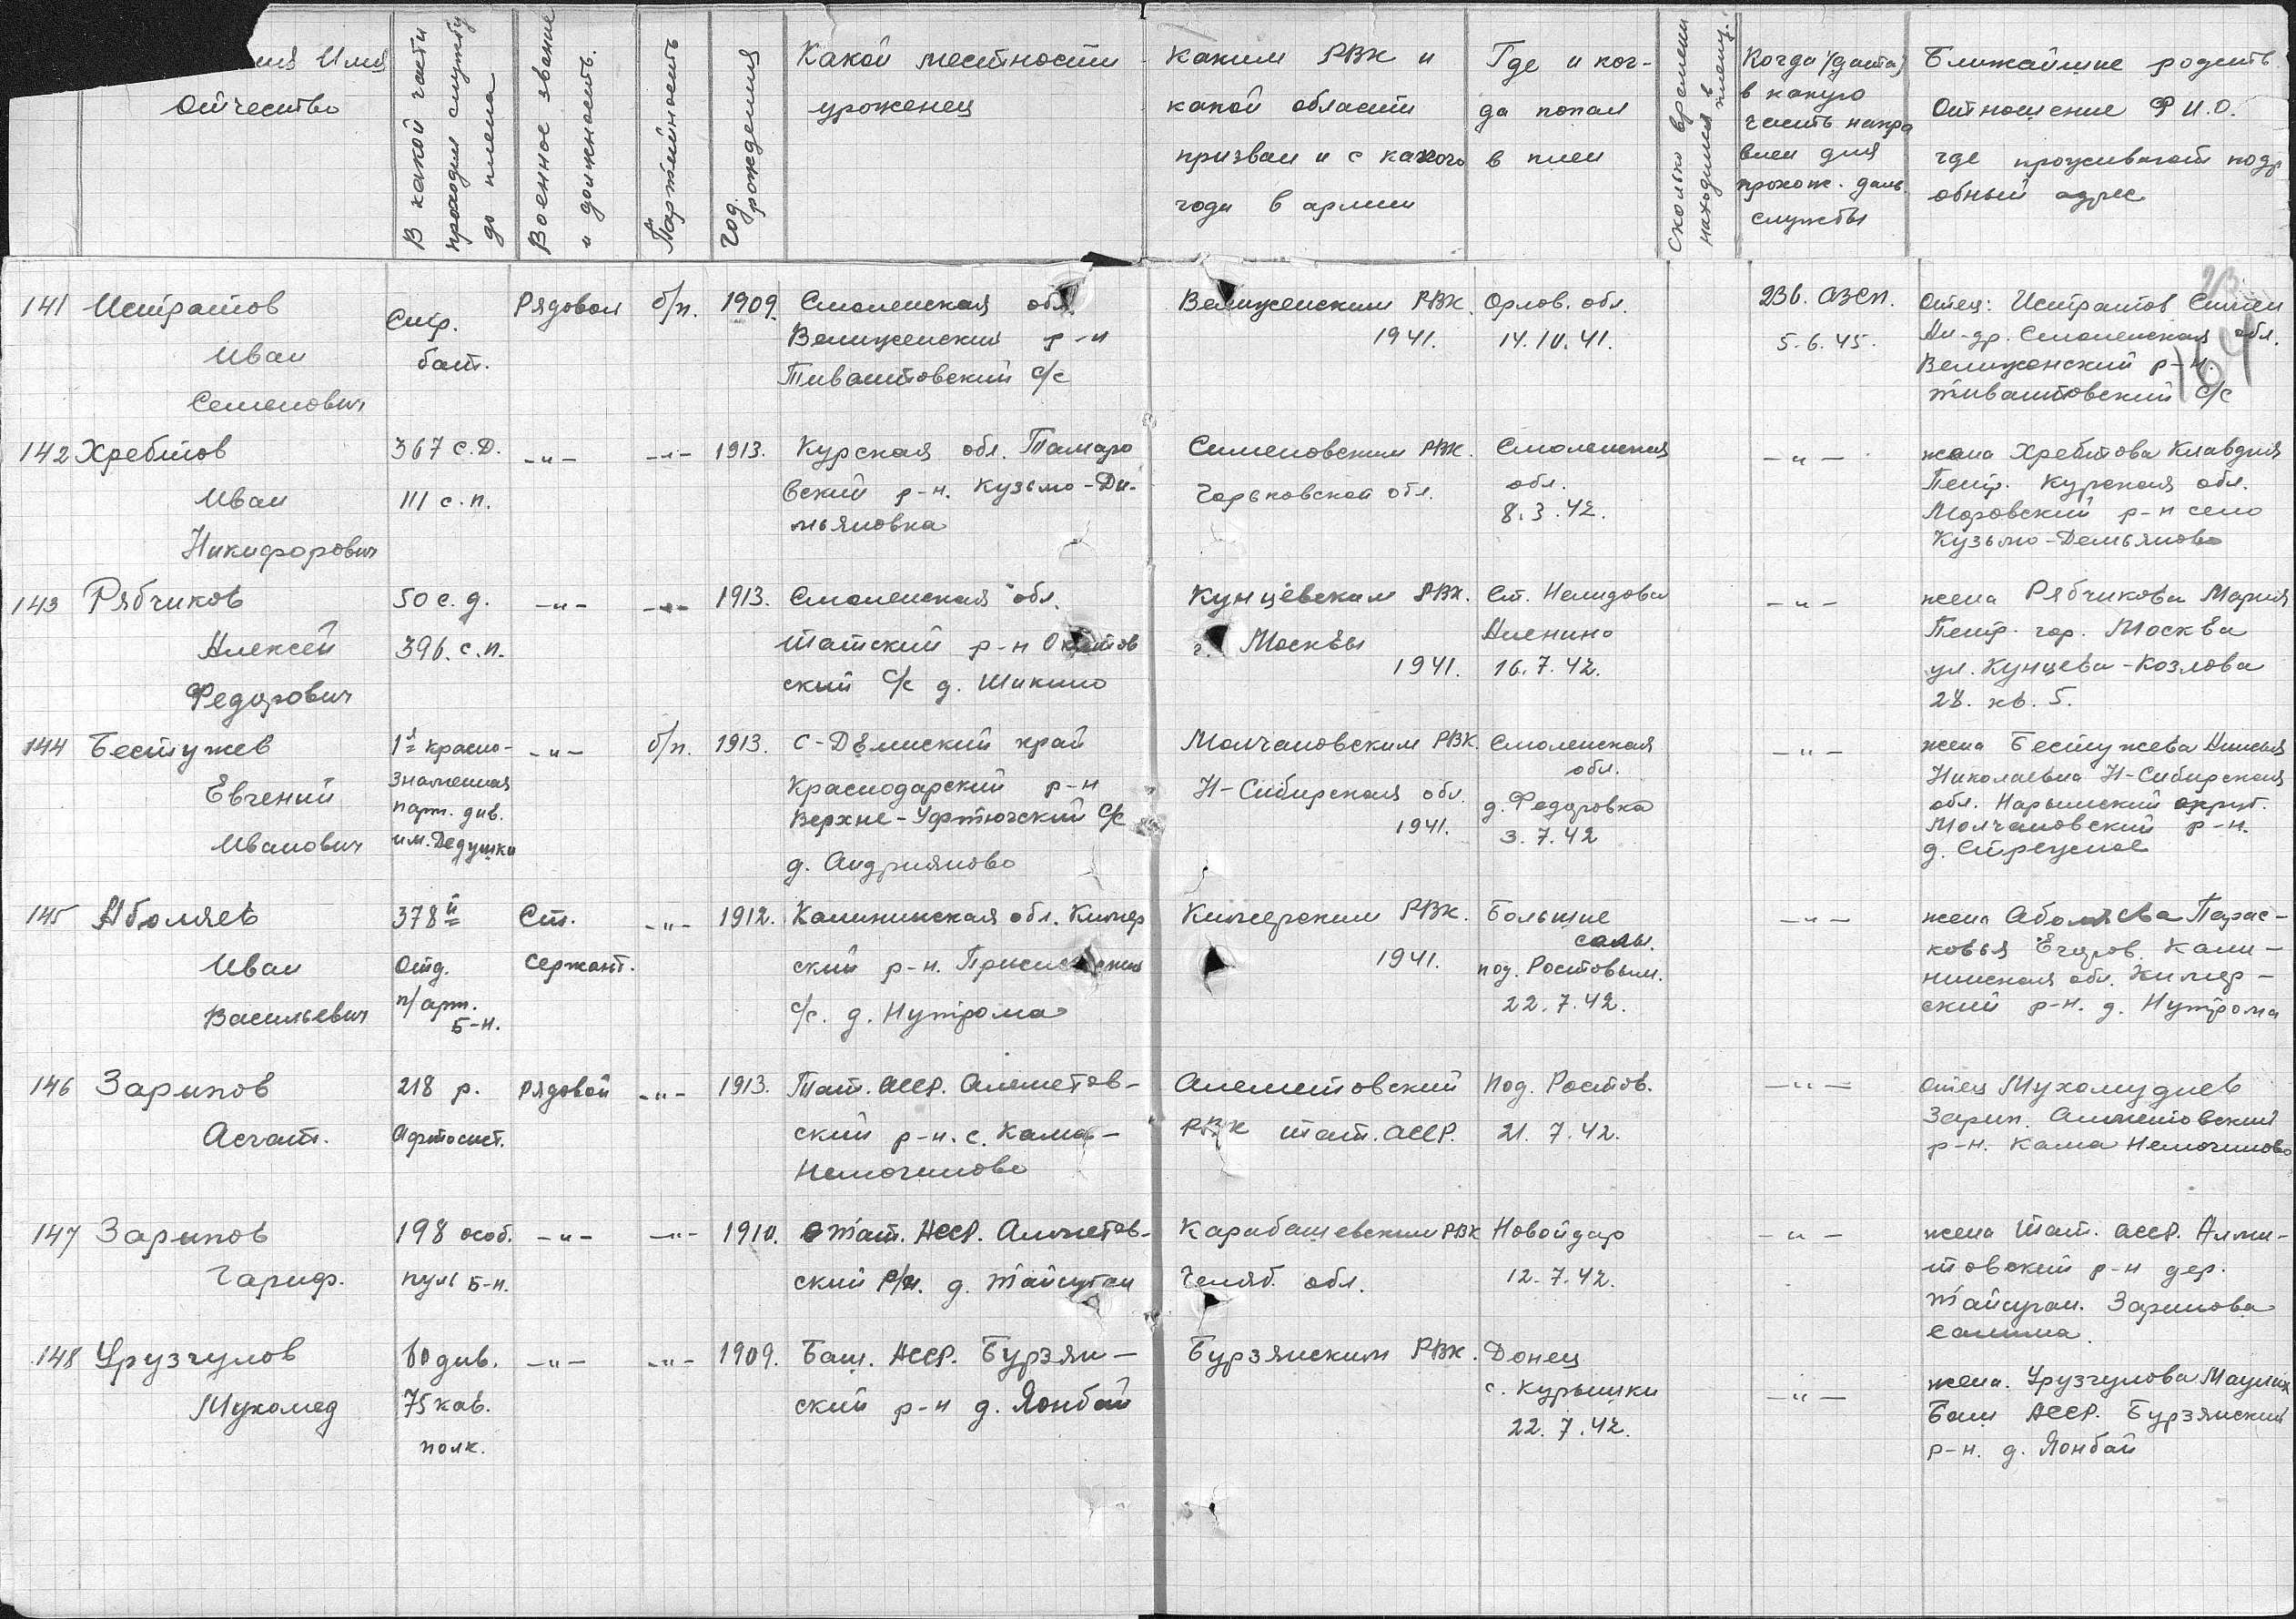 Имя
Отчество
В какой части
проходил службу
до плена
Военное звание
и должность.
Партийность
Год.
рождения
Какой местности
уроженец
Каким РВК и
какой области
призван и с какого
года в армии
Где и ког-
да попал
в плен
Сколько времени
находился в
плену.
Когда (дата)
в какую
часть напра
влен для
прохож. даль.
службы
Ближайшие родств.
Отношение Ф.И.О.
где проживает подр
обный адрес
164
141 Истратов
Иван
Семенович
Стр.
бат.
Рядовой
б/п.
1909.
Смоленская обл.
Велиженский р-н
Тиваштовский с/с
Велиженским РВК.
1941.
Орлов. обл.
14.10.41.
236. АЗСП.
5.6.45.
Отец: Истратов Семен
Ан-др. Смоленская обл.
Велижонский р-н.
Тиваштовский с/с
142 Хребтов
Иван
Никифорович
367 с.д.
111 с.п.
-"-
-"-
1913.
Курская обл. Тамаро
вский р-н. Кузьмо-Ди-
мьяновка
Семеновским РВК.
Горьковской обл.
Смоленская
обл.
8.3.42.
-"-
жена Хребтова Клавдия
Петр. Курская обл.
Моровский р-н село
Кузьмо-Демьяново
143 Рябчиков
Алексей
Федорович
50 с.д.
396. с.п.
-"-
-"-
1913.
Смоленская обл.
ский с/с д. Шикино
Кунцевским РВК.
г. Москвы
1941.
Ст. Нелидова
Аленино
16.7.42.
-"-
жена Рябчикова Мария
Петр. гор. Москва
ул. Кунцева-Козлова
28. кв. 5.
144 Бестужев
Евгений
Иванович
1я красно-
знаменная
парт. див.
им. Дедушки
-"-
б/п.
1913.
С-Двинский край
Краснодарский р-н
Верхне-Уфтюгский с/с
д. Андрияново
Молчановским РВК.
Н-Сибирская обл.
1941.
Смоленская
обл.
д. Федоровка
3.7.42
-"-
жена Бестужева
Николаевна Н-Сибирская
обл. Нарымский округ.
Молчановский р-н.
д. Стрежное
145 Аболяев
Иван
Васильевич
378й
Отд.
п/арт.
Б-н.
Ст.
сержант.
-"-
1912.
Калининская обл. Кимер
ский р-н.
с/с. д. Нутрома
Кимерским РВК.
1941.
Большие
салы.
под. Ростовым.
22.7.42.
-"-
жена Аболяева Парас-
ковья Егоров. Кали-
нинская обл. Кимер-
ский р-н. д. Нутрома
146 Зарипов
Асгат.
218 р.
Рядовой
-"-
1913.
Тат. АССР. Алеметов-
ский р-н. с. Кама-
Немочиново
Алеметовский
РВК тат. АССР.
Под. Ростов.
21.7.42.
-"-
отец Мухомудиев
Зарип. Альметовский
р-н. Кама Немочиново
147 Зарипов
Гариф.
198 особ.
пуль Б-н.
-"-
-"-
1910.
Тат. АССР. Альметов-
ский р/н. д. Тайсуган
Карабашевским РВК
Челяб. обл.
Новойдар
12.7.42.
-"-
жена тат. АССР. Альме-
товский р-н дер.
Тайсуган. Зарипова
Салима.
148 Урузгулов
Мухомед
60 див.
75 кав.
полк.
-"-
-"-
1909.
Баш. АССР. Бурзян-
ский р-н д. Яонбай
Бурзянским РВК.
Донец
с. Курышки
22.7.42.
-"-
жена. Урузгулова
Баш АССР. Бурзянский
р-н. д. Яонбай